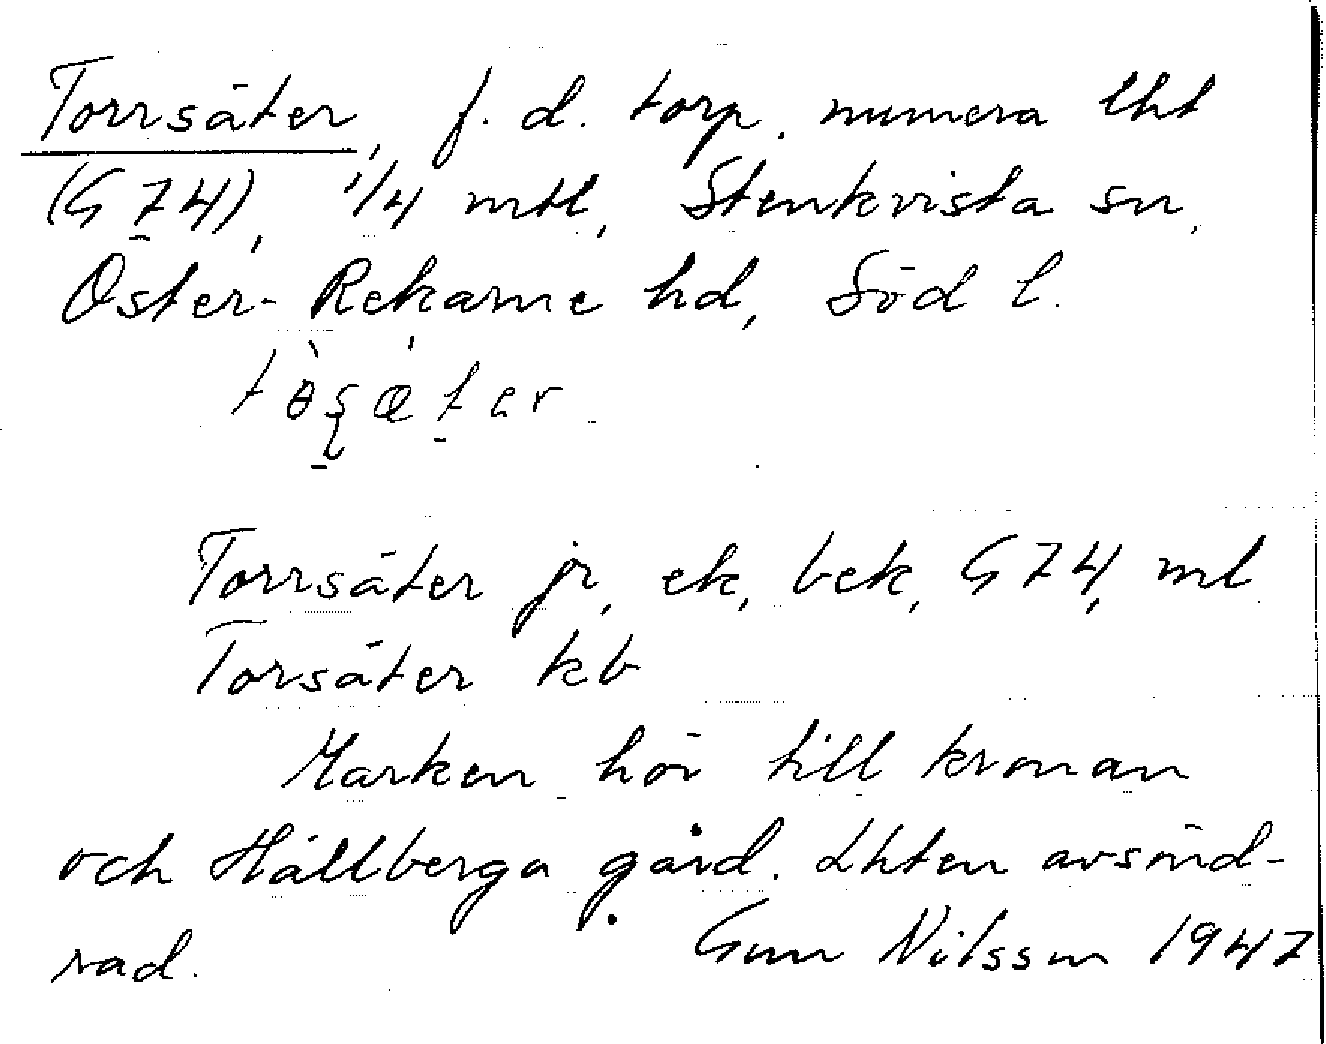 Torrsäter, f. d. torp. numera lht
(G 74), 1/4 mtl, Stenkvista sn,
Öster-Rekarne hd, Söd l.
Torrsäter jr, ek, bek, G 74, ml
Torsäter kb
Marken hör till kronan
och Hällberga gård. Lhten avsönd-
rad. Gun Nilsson 1947